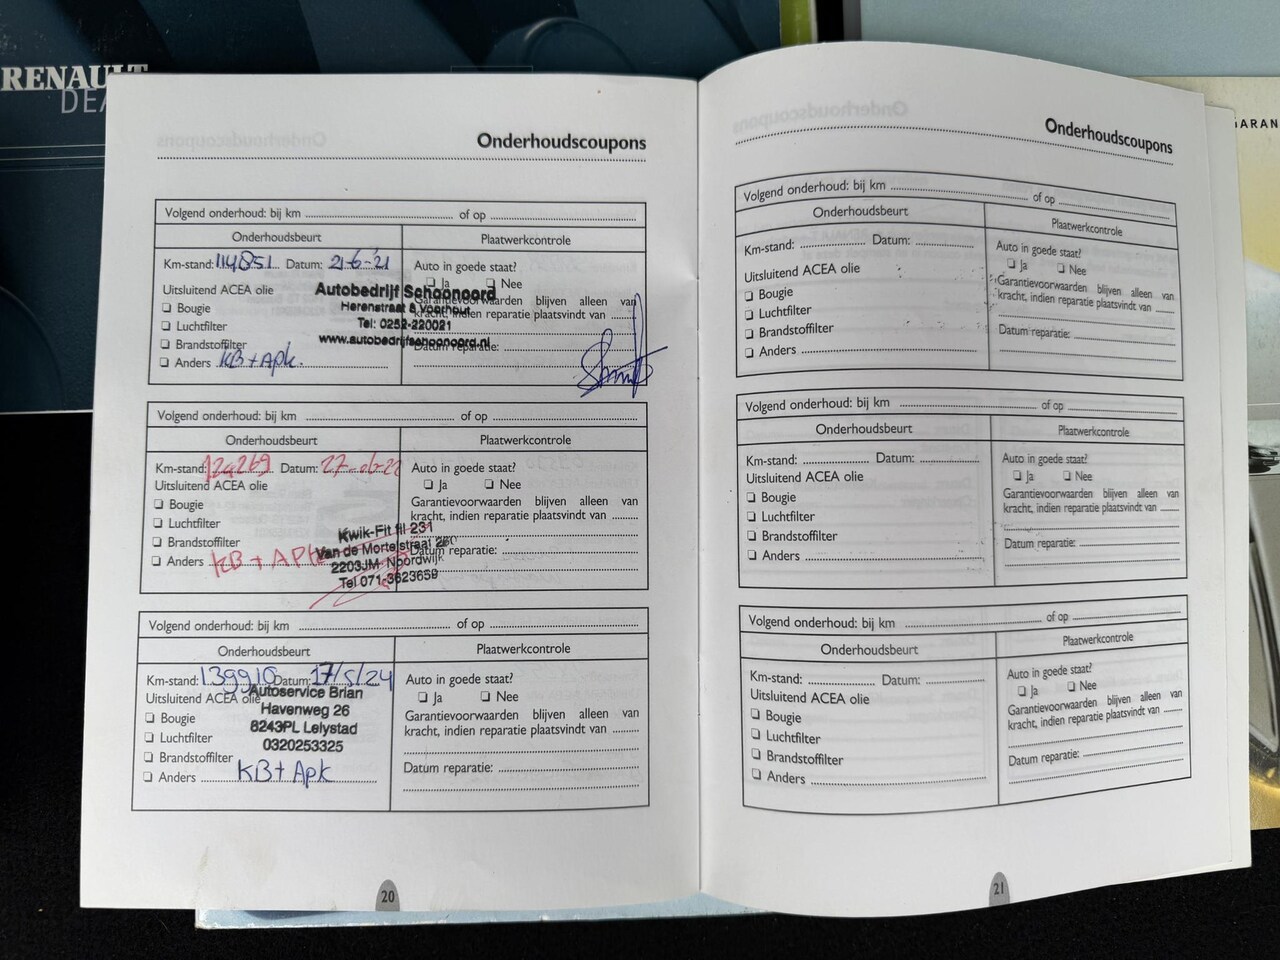 RENAULT
Onderhoudscoupons
Volgend onderhoud: bij km ........ of op ........
Onderhoudsbeurt Plaatwerkcontrole
Km-stand: 114851 Datum: 21-6-21 Auto in goede staat?
❑ Ja ❑ Nee
Uitsluitend ACEA olie
Autobedrijf Schoonoord
Herenstraat 8 Voorhout
Tel: 0252-220021
www.autobedrijfschoonoord.nl
Garantievoorwaarden blijven alleen van
kracht, indien reparatie plaatsvindt van ........
❑ Bougie
❑ Luchtfilter
❑ Brandstoffilter
Datum reparatie: ........
❑ Anders KB + Apk.
Volgend onderhoud: bij km ........ of op ........
Onderhoudsbeurt Plaatwerkcontrole
Km-stand: Datum: Auto in goede staat?
Uitsluitend ACEA olie ❑ Ja ❑ Nee
❑ Bougie
Garantievoorwaarden blijven alleen van
kracht, indien reparatie plaatsvindt van ........
❑ Luchtfilter
❑ Brandstoffilter
Kwik-Fit fil 231
Van de Mortelstraat 260
2203JM Noordwijk
Tel 071-3623659
Datum reparatie: ........
❑ Anders KB + APK
Volgend onderhoud: bij km ........ of op ........
Onderhoudsbeurt Plaatwerkcontrole
Km-stand: 139910 Datum: 17/5/24 Auto in goede staat?
Uitsluitend ACEA olie ❑ Ja ❑ Nee
Autoservice Brian
Havenweg 26
8243PL Lelystad
0320253325
❑ Bougie
Garantievoorwaarden blijven alleen van
kracht, indien reparatie plaatsvindt van ........
❑ Luchtfilter
❑ Brandstoffilter
Datum reparatie: ........
❑ Anders KB + Apk
20
Onderhoudscoupons
Volgend onderhoud: bij km ........ of op ........
Onderhoudsbeurt Plaatwerkcontrole
Km-stand: ........ Datum: ........ Auto in goede staat?
Uitsluitend ACEA olie ❑ Ja ❑ Nee
❑ Bougie
Garantievoorwaarden blijven alleen van
kracht, indien reparatie plaatsvindt van ........
❑ Luchtfilter
❑ Brandstoffilter
Datum reparatie: ........
❑ Anders ........
Volgend onderhoud: bij km ........ of op ........
Onderhoudsbeurt Plaatwerkcontrole
Km-stand: ........ Datum: ........ Auto in goede staat?
Uitsluitend ACEA olie ❑ Ja ❑ Nee
❑ Bougie
Garantievoorwaarden blijven alleen van
kracht, indien reparatie plaatsvindt van ........
❑ Luchtfilter
❑ Brandstoffilter
Datum reparatie: ........
❑ Anders ........
Volgend onderhoud: bij km ........ of op ........
Onderhoudsbeurt Plaatwerkcontrole
Km-stand: ........ Datum: ........ Auto in goede staat?
Uitsluitend ACEA olie ❑ Ja ❑ Nee
❑ Bougie
Garantievoorwaarden blijven alleen van
kracht, indien reparatie plaatsvindt van ........
❑ Luchtfilter
❑ Brandstoffilter
Datum reparatie: ........
❑ Anders ........
21